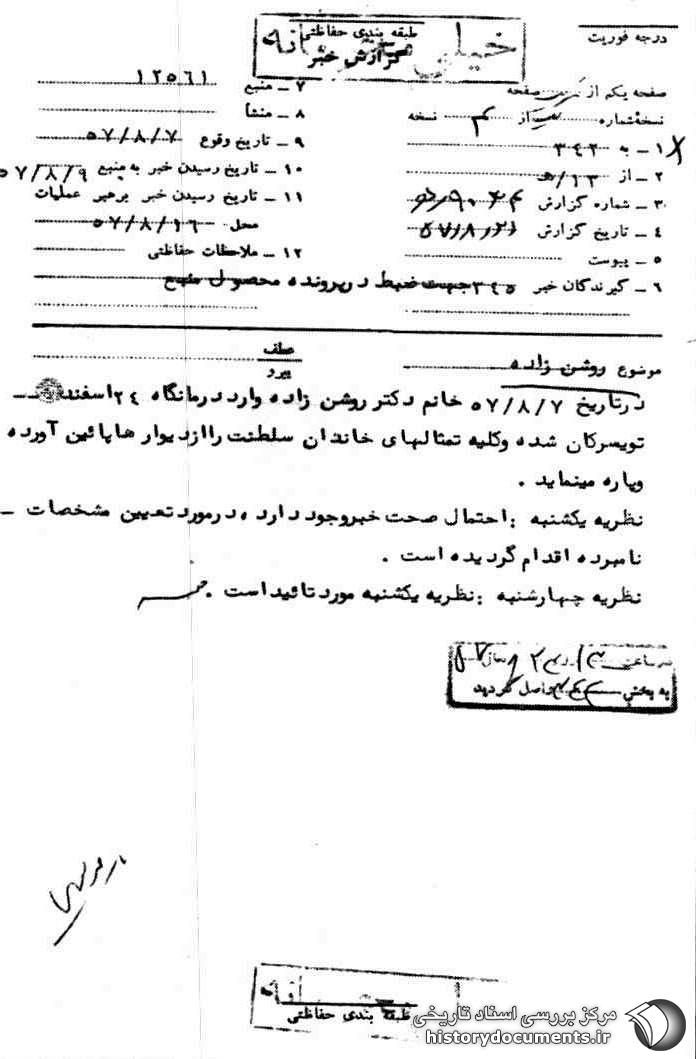 درجه فوریت
طبقه بندی حفاظتی
خیلی محرمانه
گزارش خبر
صفحه یکم از یک صفحه
نسخه شماره از نسخه
۱ ـ به ۳۴۲
۲ ـ از ۱۳/هـ
۳ ـ شماره گزارش
۴ ـ تاریخ گزارش ۵۷/۸/۲۱
۵ ـ پیوست
۶ ـ گیرندگان خبر ۳۴۵ جهت ضبط در پرونده محصول منبع
۷ ـ منبع ۱۲۵۶۱
۸ ـ منشأ
۹ ـ تاریخ وقوع ۵۷/۸/۷
۱۰ ـ تاریخ رسیدن خبر به منبع ۵۷/۸/۹
۱۱ ـ تاریخ رسیدن خبر برهبر عملیات
محل ۵۷/۸/۱۶
۱۲ ـ ملاحظات حفاظتی
موضوع روشن زاده
عطف
پیرو
درتاریخ ۵۷/۸/۷ خانم دکتر روشن زاده وارد درمانگاه ۲۴ اسفند ـ
تویسرکان شده وکلیه تمثالهای خاندان سلطنت را از دیوار ها پائین آورده
وپاره مینماید .
نظریه یکشنبه : احتمال صحت خبر وجود دارد ، درمورد تعیین مشخصات ـ
نامبرده اقدام گردیده است .
نظریه چهارشنبه : نظریه یکشنبه مورد تائید است .
در ساعت روز سال ۵۷
به بخش واصل گردید
طبقه بندی حفاظتی
مرکز بررسی اسناد تاریخی
historydocuments.ir